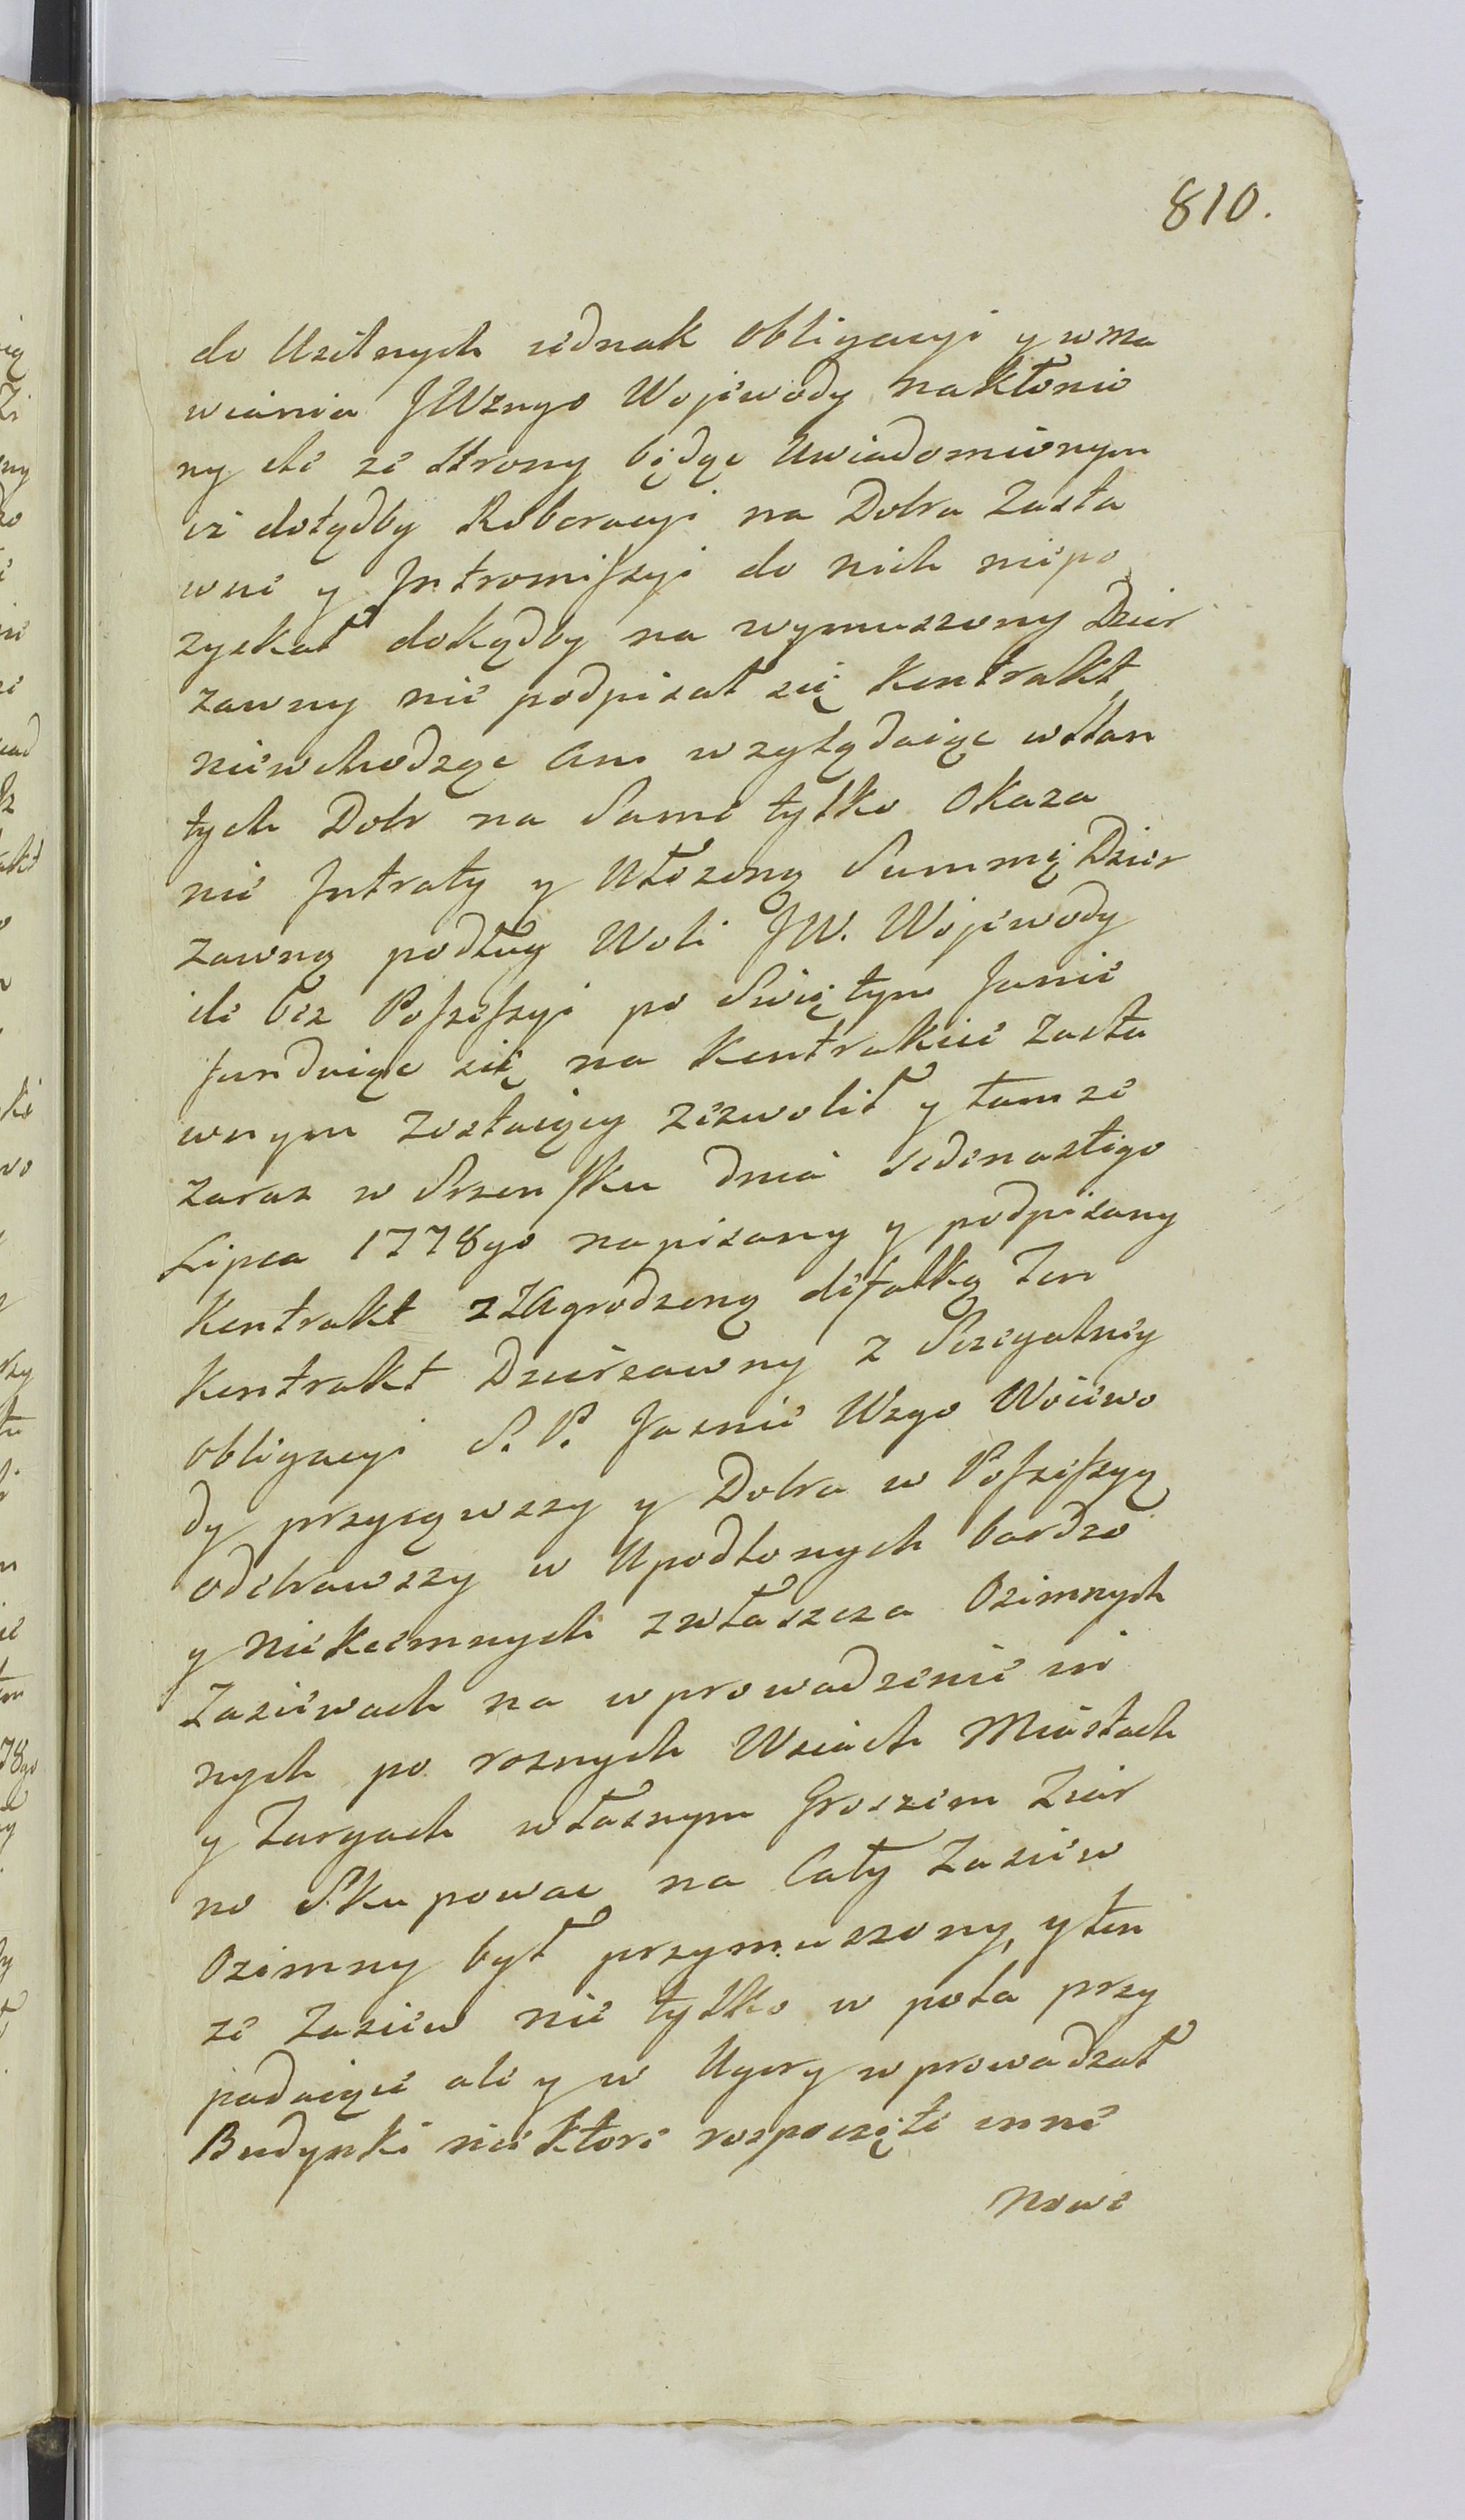 810.
do Usilnych iednak obligacyi y wma
wiania JWznego Wojewody nakłonio
ny ile ze strony będąc Uwiadomionym
iż dotądby Roboracyi na Dobra Zasta
wne y Intromiſsyi do nich niepo
zyskał dokądby na wymuszony Dzier
zawny nie podpisał się Kontrakt,
niewchodząc ani wzglądaiąc w stan
tych Dobr na samo tylko Okaza
nie Intraty y Ułożoną Summę Dzier
zawną podług Woli JW. Wojewody
ile bez Poſseſsyi po Swiętym Janie
funduiąc się na Kontrakcie Zasta
wnym zostaiący zezwolił y tamże
zaraz w Srzensku dnia Jedenastego
Lipca 1778go napisany y podpisany
Kontrakt z Zagrodzoną defalką Ten
Kontrakt Dzierzawny z Szczegulney
obligacyi S. P. Jaśnie Wzgo Woiewo
dy przyiąwszy y Dobra w Poſseſsyą
odebrawszy w Upodlonych bardzo
y nikczemnych zwłaszcza Ozimnych
Zasiewach na wprowadzenie in
nych po roznych Wsiach Miastach
y Targach własnym Groszem Ziar
no Skupować na Cały Zasiew
Ozimny był przymuszony, y ten
że Zasiew nie tylko w pola przy
padaiące ale y w Ugory wprowadzał
Budynki niektore rozpoczęte inne
nowe